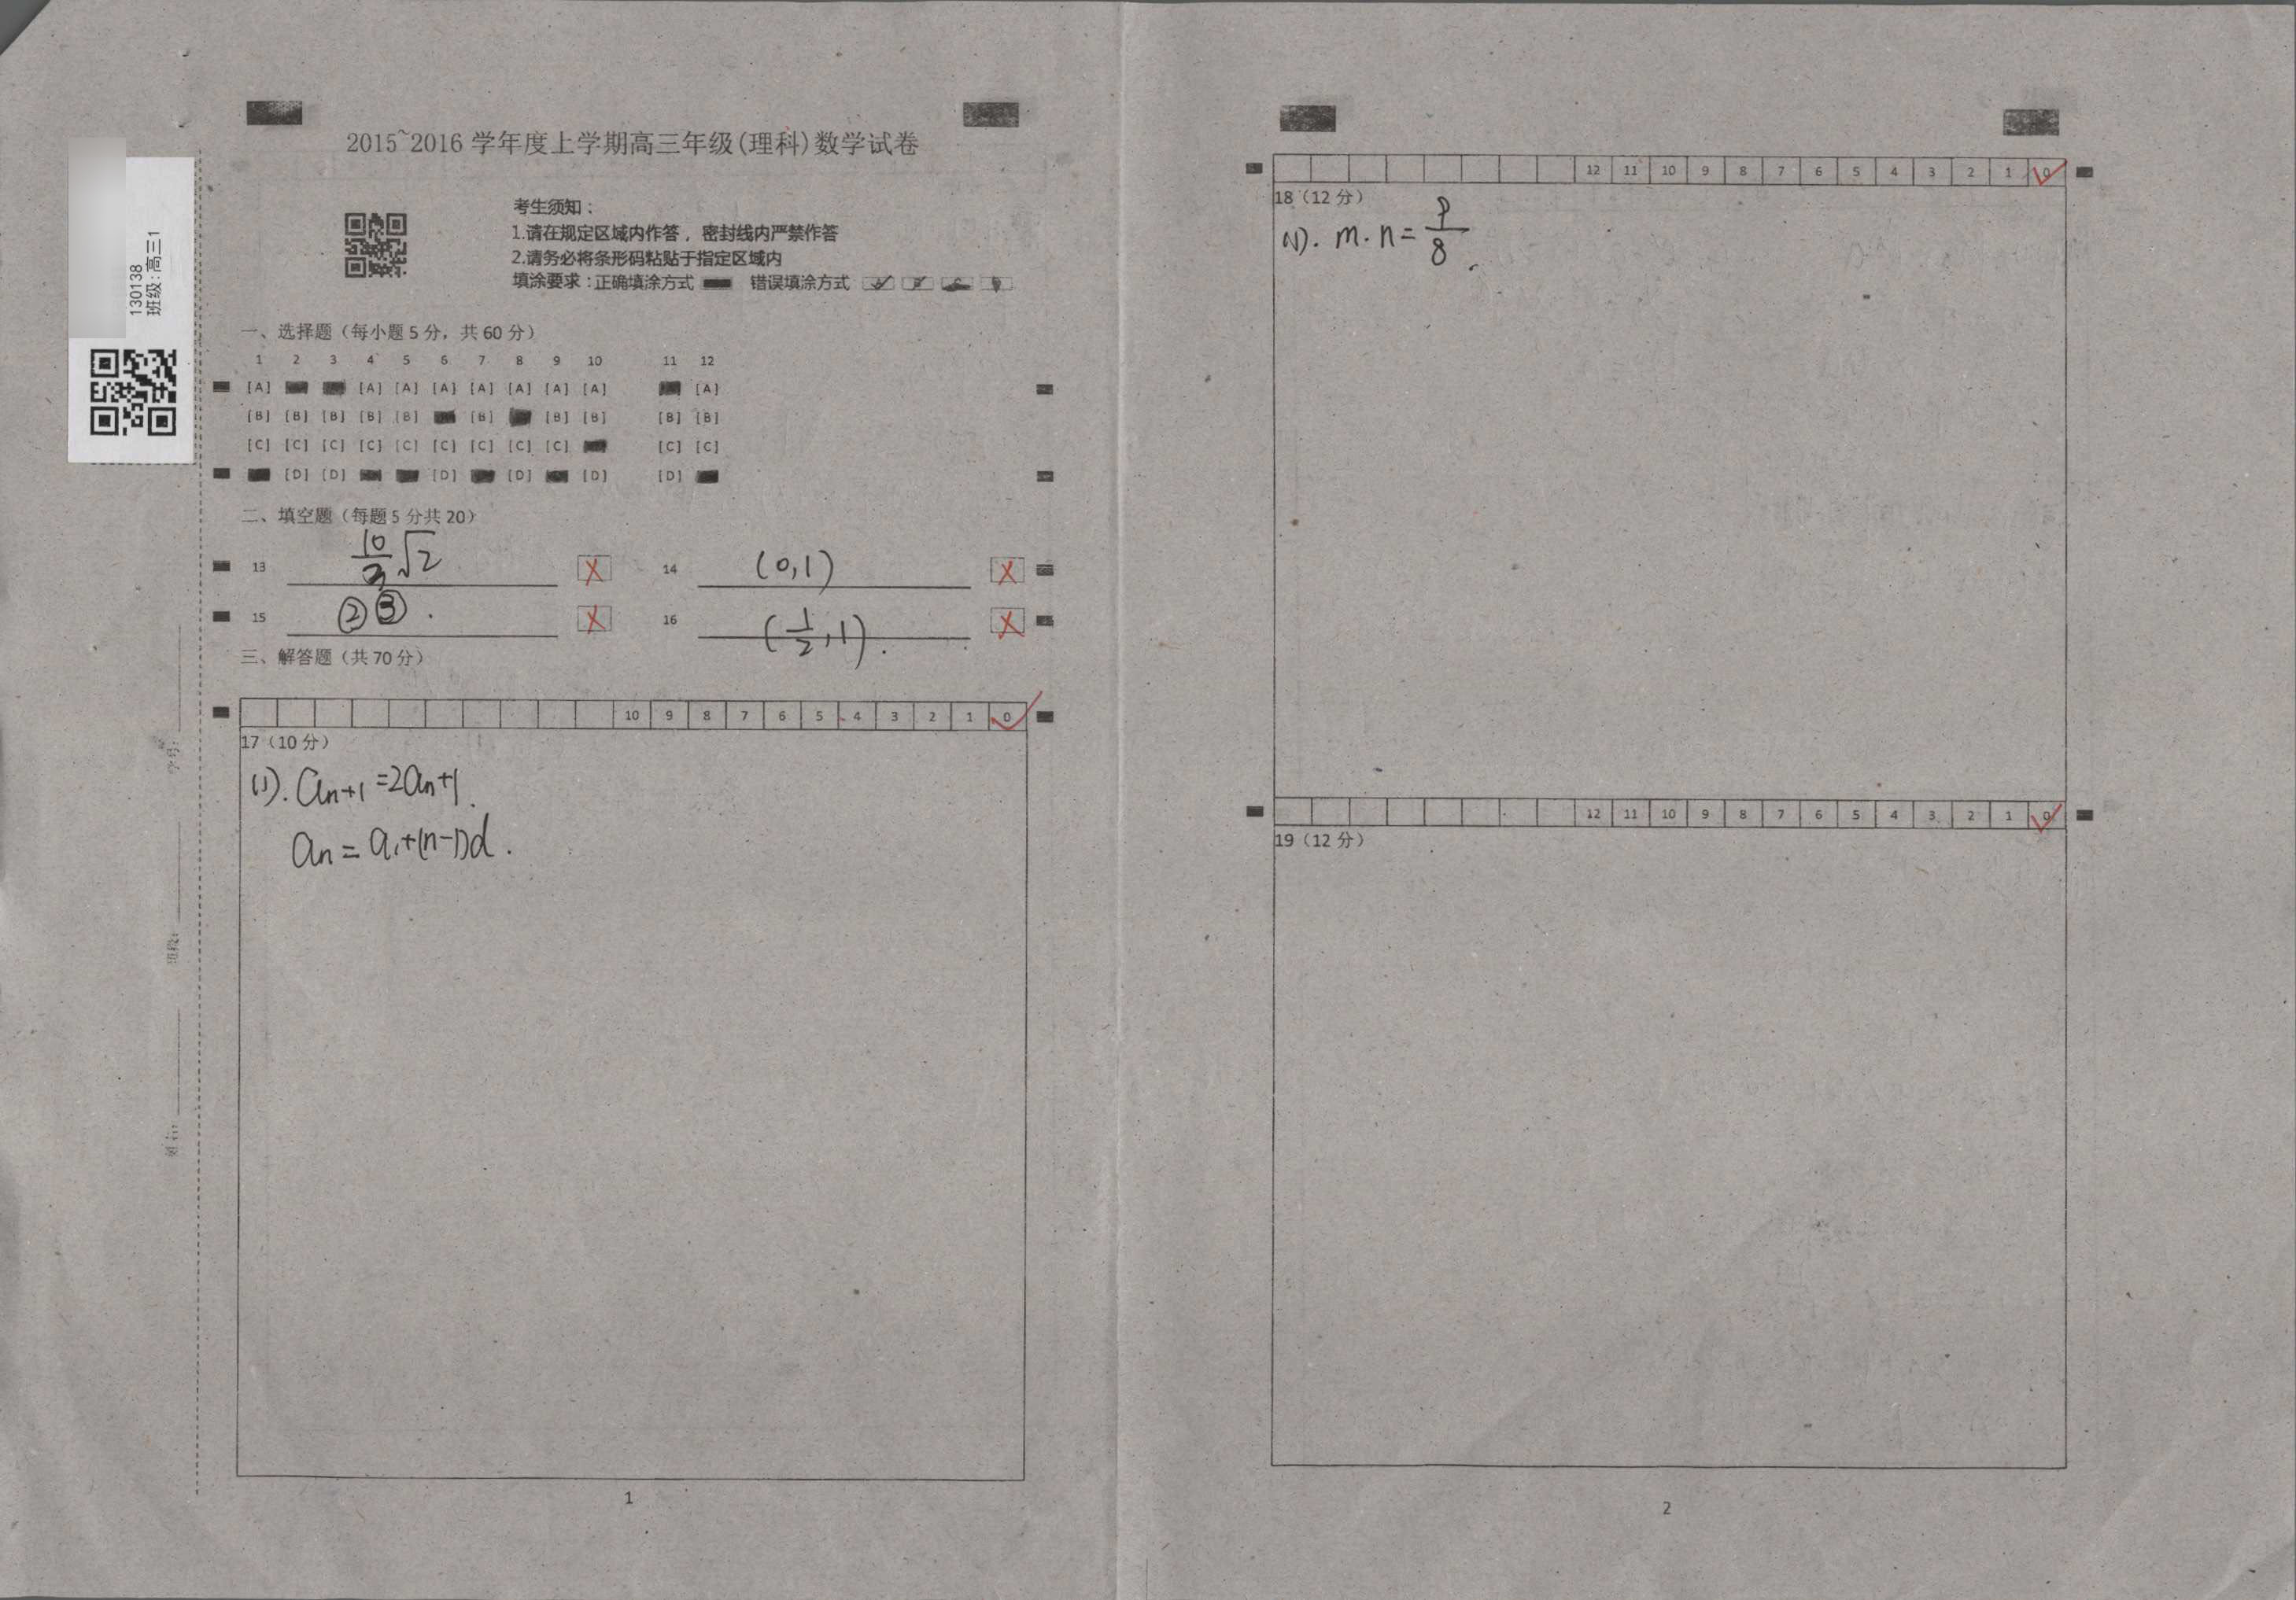 2015~2016 学年度上学期高三年级(理科)数学试卷
130138
班级:高三1
考生须知：
1.请在规定区域内作答，密封线内严禁作答
2.请务必将条形码粘贴于指定区域内
填涂要求：正确填涂方式 错误填涂方式
一、选择题（每小题 5 分，共 60 分）
1 2 3 4 5 6 7 8 9 10 11 12
[A] [A] [A] [A] [A] [A] [A] [A] [A]
[B] [B] [B] [B] [B] [B] [B] [B] [B] [B]
[C] [C] [C] [C] [C] [C] [C] [C] [C] [C] [C]
[D] [D] [D] [D] [D] [D]
二、填空题（每题 5 分共 20）
13 10/3 √2 X 14 (0,1) X
15 ②③. X 16 (1/2,1). X
三、解答题（共 70 分）
10 9 8 7 6 5 4 3 2 1 0
17（10 分）
(1). an+1=2an+1.
an=a1+(n-1)d.
1
12 11 10 9 8 7 6 5 4 3 2 1 0
18（12 分）
(1). m·n=9/8.
12 11 10 9 8 7 6 5 4 3 2 1 0
19（12 分）
2
学号：
班级：
姓名：